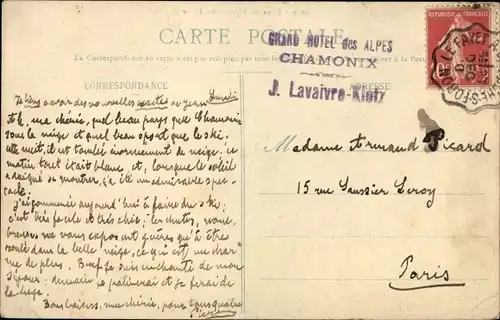 CARTE POSTALE
La Correspondance au recto n'est pas acceptée par tous les pays étrangers
CORRESPONDANCE
ADRESSE
GRAND HOTEL des ALPES
CHAMONIX
J. Lavaivre-Klotz
REPUBLIQUE FRANÇAISE
LE FAYET
à avoir des nouvelles
Lundi
Ah, ma chérie, quel beau pays que Chamonix
sous la neige et quel beau sport que le ski.
Cette nuit, il est tombé énormément de neige. ce
matin tout était blanc, et, lorsque le soleil
a daigné se montrer, ça a été un admirable spec-
tacle.
J'ai commencé aujourd'hui à faire du ski;
c'est très facile et très chic; les chutes, nom-
breuses ne vous exposent guères qu'à être
roulé dans la belle neige, ce qui est un char-
me de plus. Bref je suis enchanté de mon
séjour. demain je patinerai et je ferai de
la luge.
Bons baisers, ma chérie, pour tous quatre
Pierre
Madame Armand Picard
15 rue Gaussier Leroy
Paris